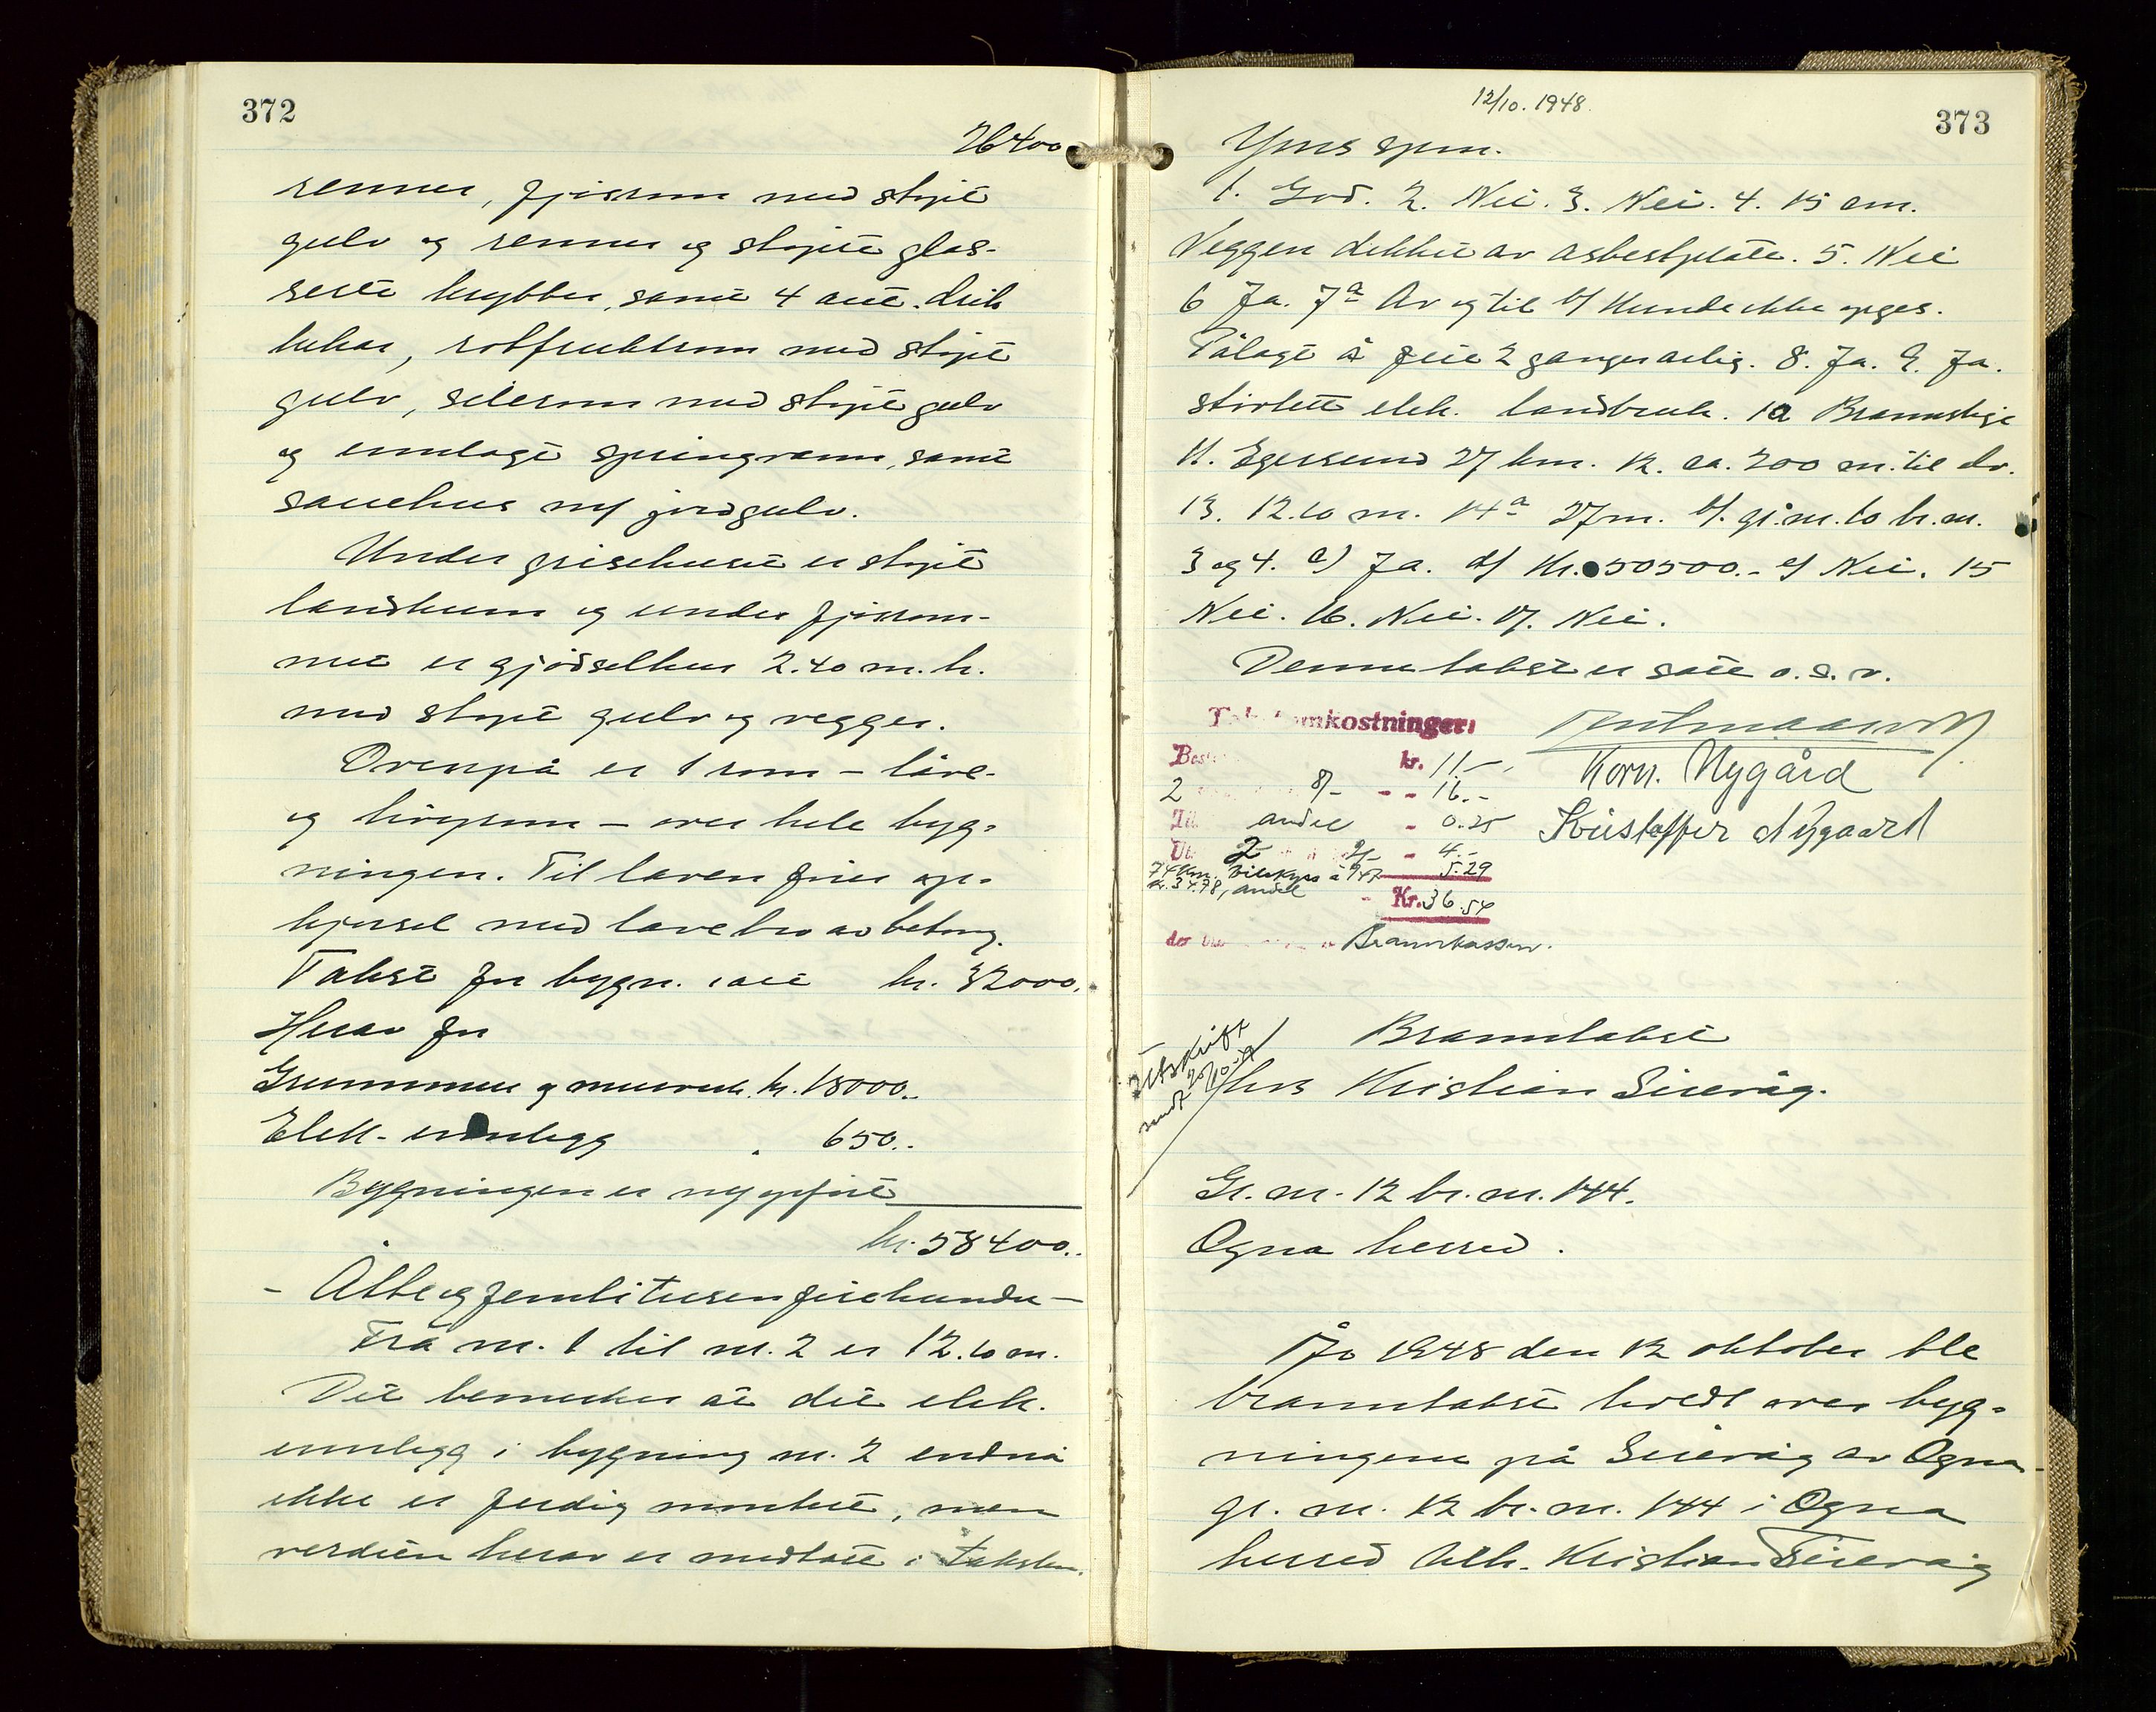 372
26400
renner, fjøsrom med støpt
gulv og renner og støpte glas-
serte krybber, samt 4 aut. drik
kekar, rotfruktrom med støpt
gulv, silerom med støpt gulv
og innlagt springvann, samt
sauehus m/ jordgulv.
Under grisehuset er støpt
landkum og under fjösrom-
met er gjødselkum 2.40 m. h.
med støpt gulv og vegger.
Ovenpå er 1 rom – låve-
og höyrom – over hele byg-
ningen. Til laven fører op-
kjørsel med lavebro av betong.
Takst for bygn. satt kr. 32000.
Herav for
Grunnmur og murverk kr. 18000.-
Elek. innlegg " 650.-
Bygningen er ny opført
kr. 58400.-
- Åtte og femti tusen fire hundre -
Fra nr. 1 til nr. 2 er 12.10 m.
Det bemerkes at det elek.
innlegg i bygning nr. 2 endnå
ikke er ferdig montert, men
verdien herav er medtatt i taksten.
12/10. 1948.
373
Yms spm.
1. God. 2. Nei. 3. Nei. 4. 15 cm.
Veggen dekket av asbestplate. 5. Nei
6 Ja. 7a Av og til b/ Kunde ikke opges.
Pålagt å feie 2 ganger årlig. 8. Ja. 9. Ja.
stirlett elek. landbruk. 10 Brannstige
11. Egersund 27 km. 12. ca. 200 m. til elv.
13. 12.10 m. 14a 27 m. b/. gr. nr. 10 br. nr.
3 og 4. c) Ja. d/ Kr. 50500.- e/ Nei. 15
Nei. 16. Nei. 17. Nei.
Denne takst er satt o.s.v.
Takstomkostninger:
kr. 11.-
2 8/- - - 16.-
andel - 0.25
2 2/- - 4.-
74 km. bilskyss à 0/47 5.29
kr. 34.78, andel
Kr. 36.54
Brannkassen.
Korn. Nygård
Kristoffer Nygaard
Utskrift
sendt 20/10 48
Branntakst
hos Kristian Sirevåg.
Gr. nr. 12 br. nr. 144.
Ogna herred.
År 1948 den 12 oktober ble
branntakst holdt over byg-
ningene på Sirevåg av Ogna
gr. nr. 12 br. nr. 144 i Ogna
herred tilh. Kristian Sirevåg